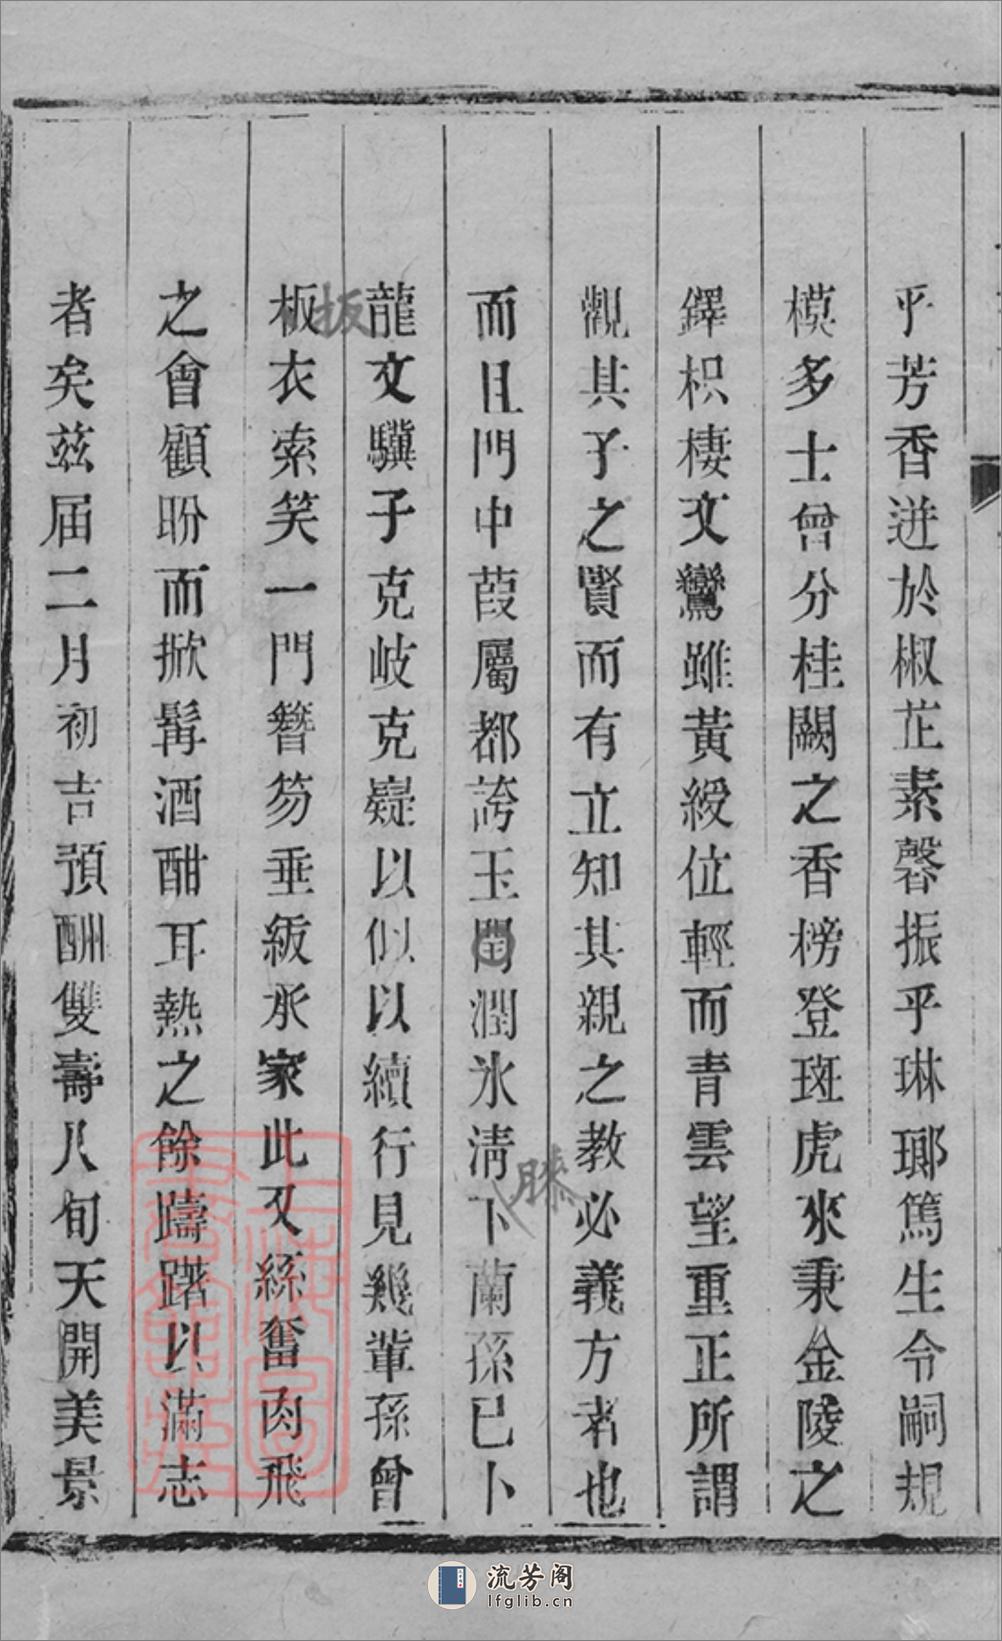 乎芳香迸於椒芷素馨振乎琳瑯篤生令嗣規
模多士曾分桂闕之香榜登斑虎來秉金陵之
鐸枳棲文鸞雖黃綬位輕而青雲望重正所謂
觀其子之賢而有立知其親之教必義方者也
而且門中葭屬都誇玉閏潤氷淸卜蘭孫已卜
滕
龍文驥子克岐克嶷以似以續行見幾輩孫曾
扳
板衣索笑一門簪笏垂紱承家此又絲奮肉飛
之會顧盼而掀髯酒酣耳熱之餘躊躇以滿志
者矣茲届二月初吉預酬雙壽八旬天開美景
上海圖書館藏
流芳阁
lfglib.cn